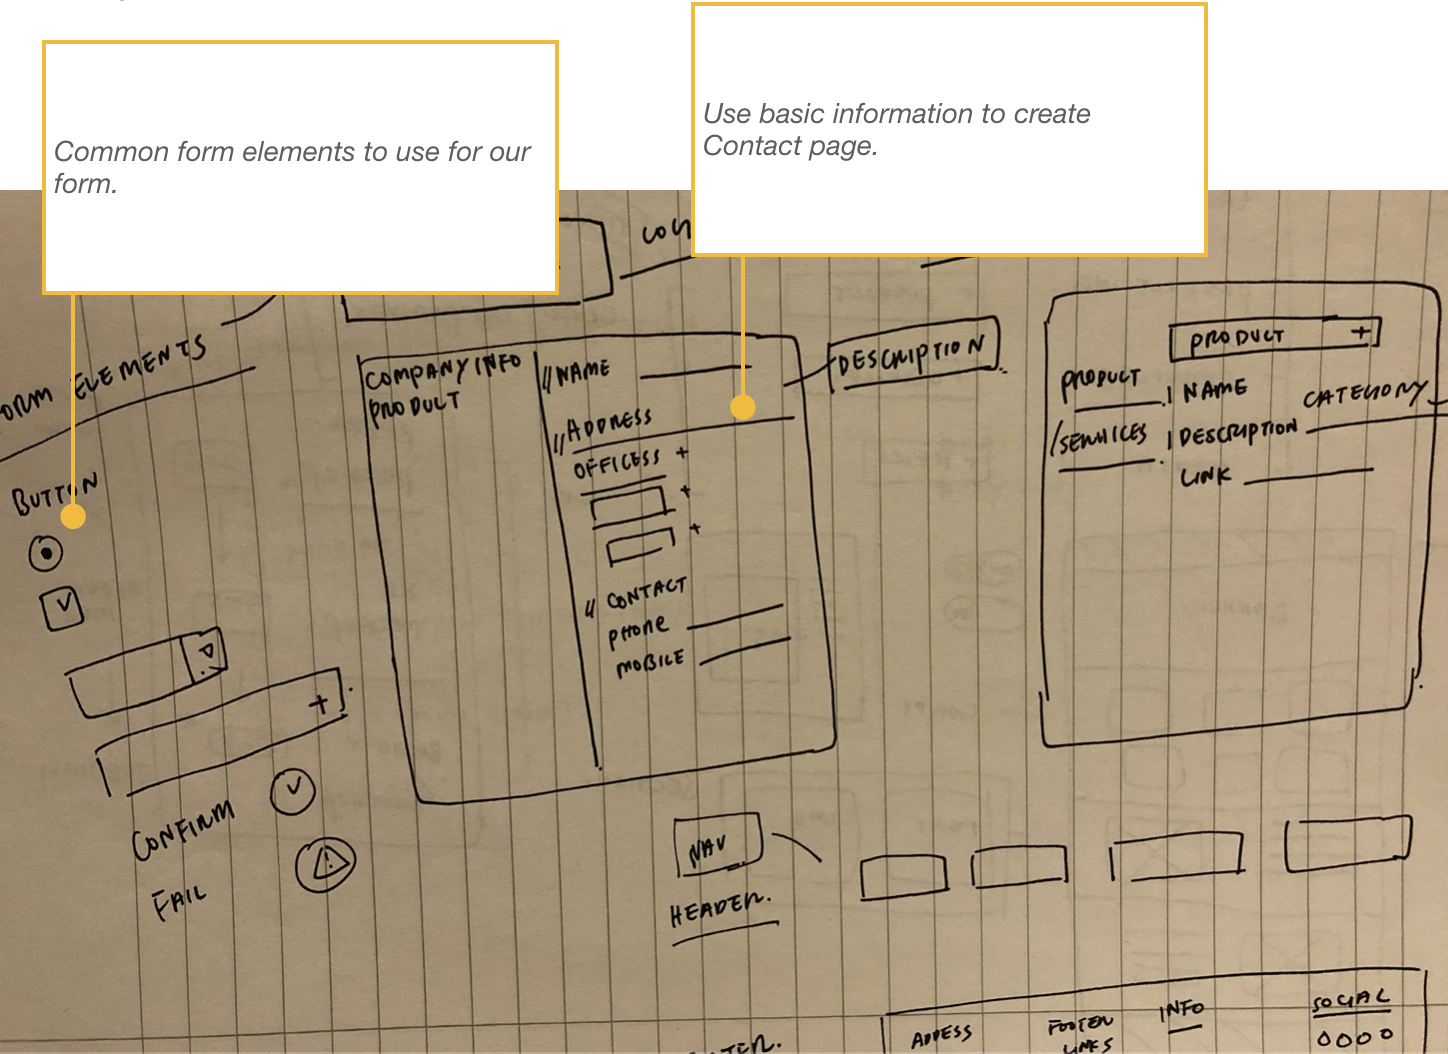 Common form elements to use for our
form.
Use basic information to create
Contact page.
FORM ELEMENTS
BUTTON
CONFIRM
FAIL
COMPANY INFO
PRODUCT
// NAME
// ADDRESS
OFFICESS +
+
+
// CONTACT
PHONE
MOBILE
DESCRIPTION
PRODUCT +
PRODUCT
/SERVICES
NAME
CATEGORY
DESCRIPTION
LINK
NAV
HEADER.
ADDESS
FOOTER
LINKS
INFO
SOCIAL